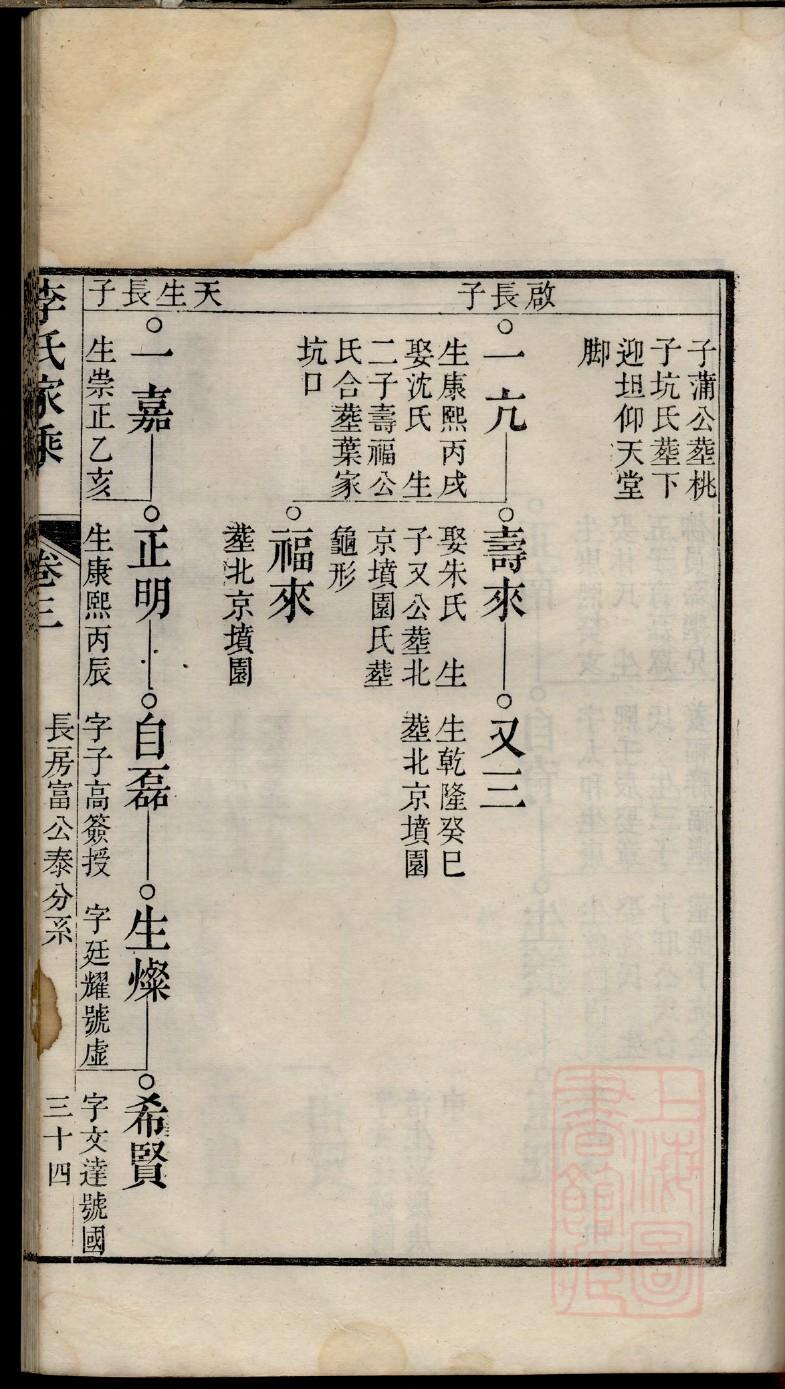 子蒲公塟桃
子坑氏塟下
迎坦仰天堂
脚
啟長子
一亢
生康熙丙戌
娶沈氏 生
二子壽福公
氏合塟葉家
坑口
壽來
娶朱氏 生
子又公塟北
京墳園氏塟
龜形
又三
生乾隆癸巳
塟北京墳園
福來
塟北京墳園
天生長子
一嘉
生崇正乙亥
正明
生康熙丙辰
自磊
字子高簽授
生燦
字廷耀號虛
希賢
字文達號國
李氏家乘
卷三
長房富公泰分系
三十四
上海圖
書館藏